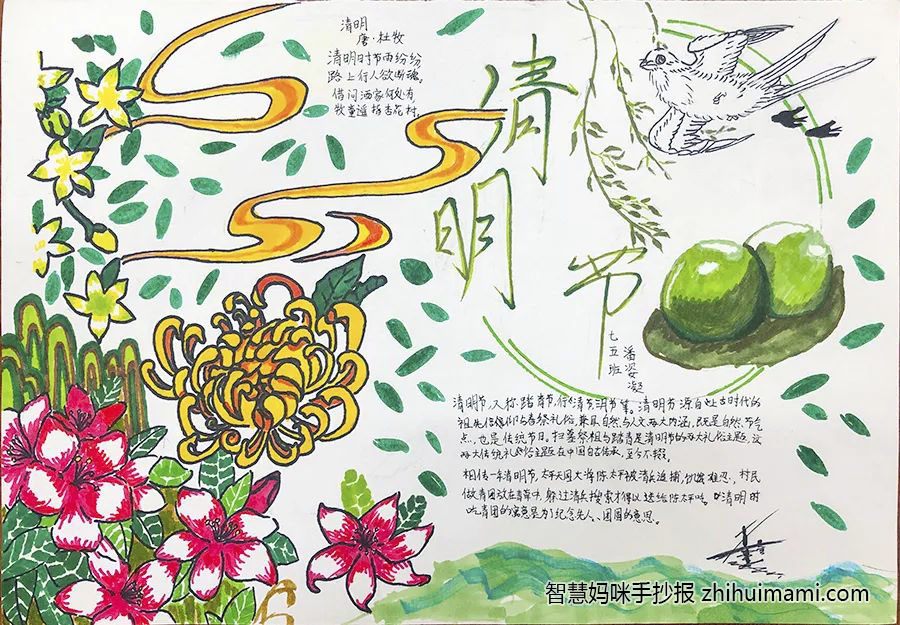 清明
唐·杜牧
清明时节雨纷纷,
路上行人欲断魂。
借问酒家何处有,
牧童遥指杏花村。
清明节
七五班
潘姿凝
清明节,又称踏青节、行清节、
节等。清明节源自上古时代的
祖先信仰与春祭礼俗,兼具自然与人文两大内涵,既是自然节气
点,也是传统节日。扫墓祭祖与踏青是清明节的两大礼俗主题,这
两大传统礼俗主题在中国自古传承,至今不辍。
相传一年清明节,太平天国大将陈太平被清兵追捕,
村民
做青团放在青草中,躲过清兵搜索才得以送给陈太平吃。
清明时
吃青团的寓意是为了纪念先人、团圆的意思。
智慧妈咪手抄报 zhihuimami.com